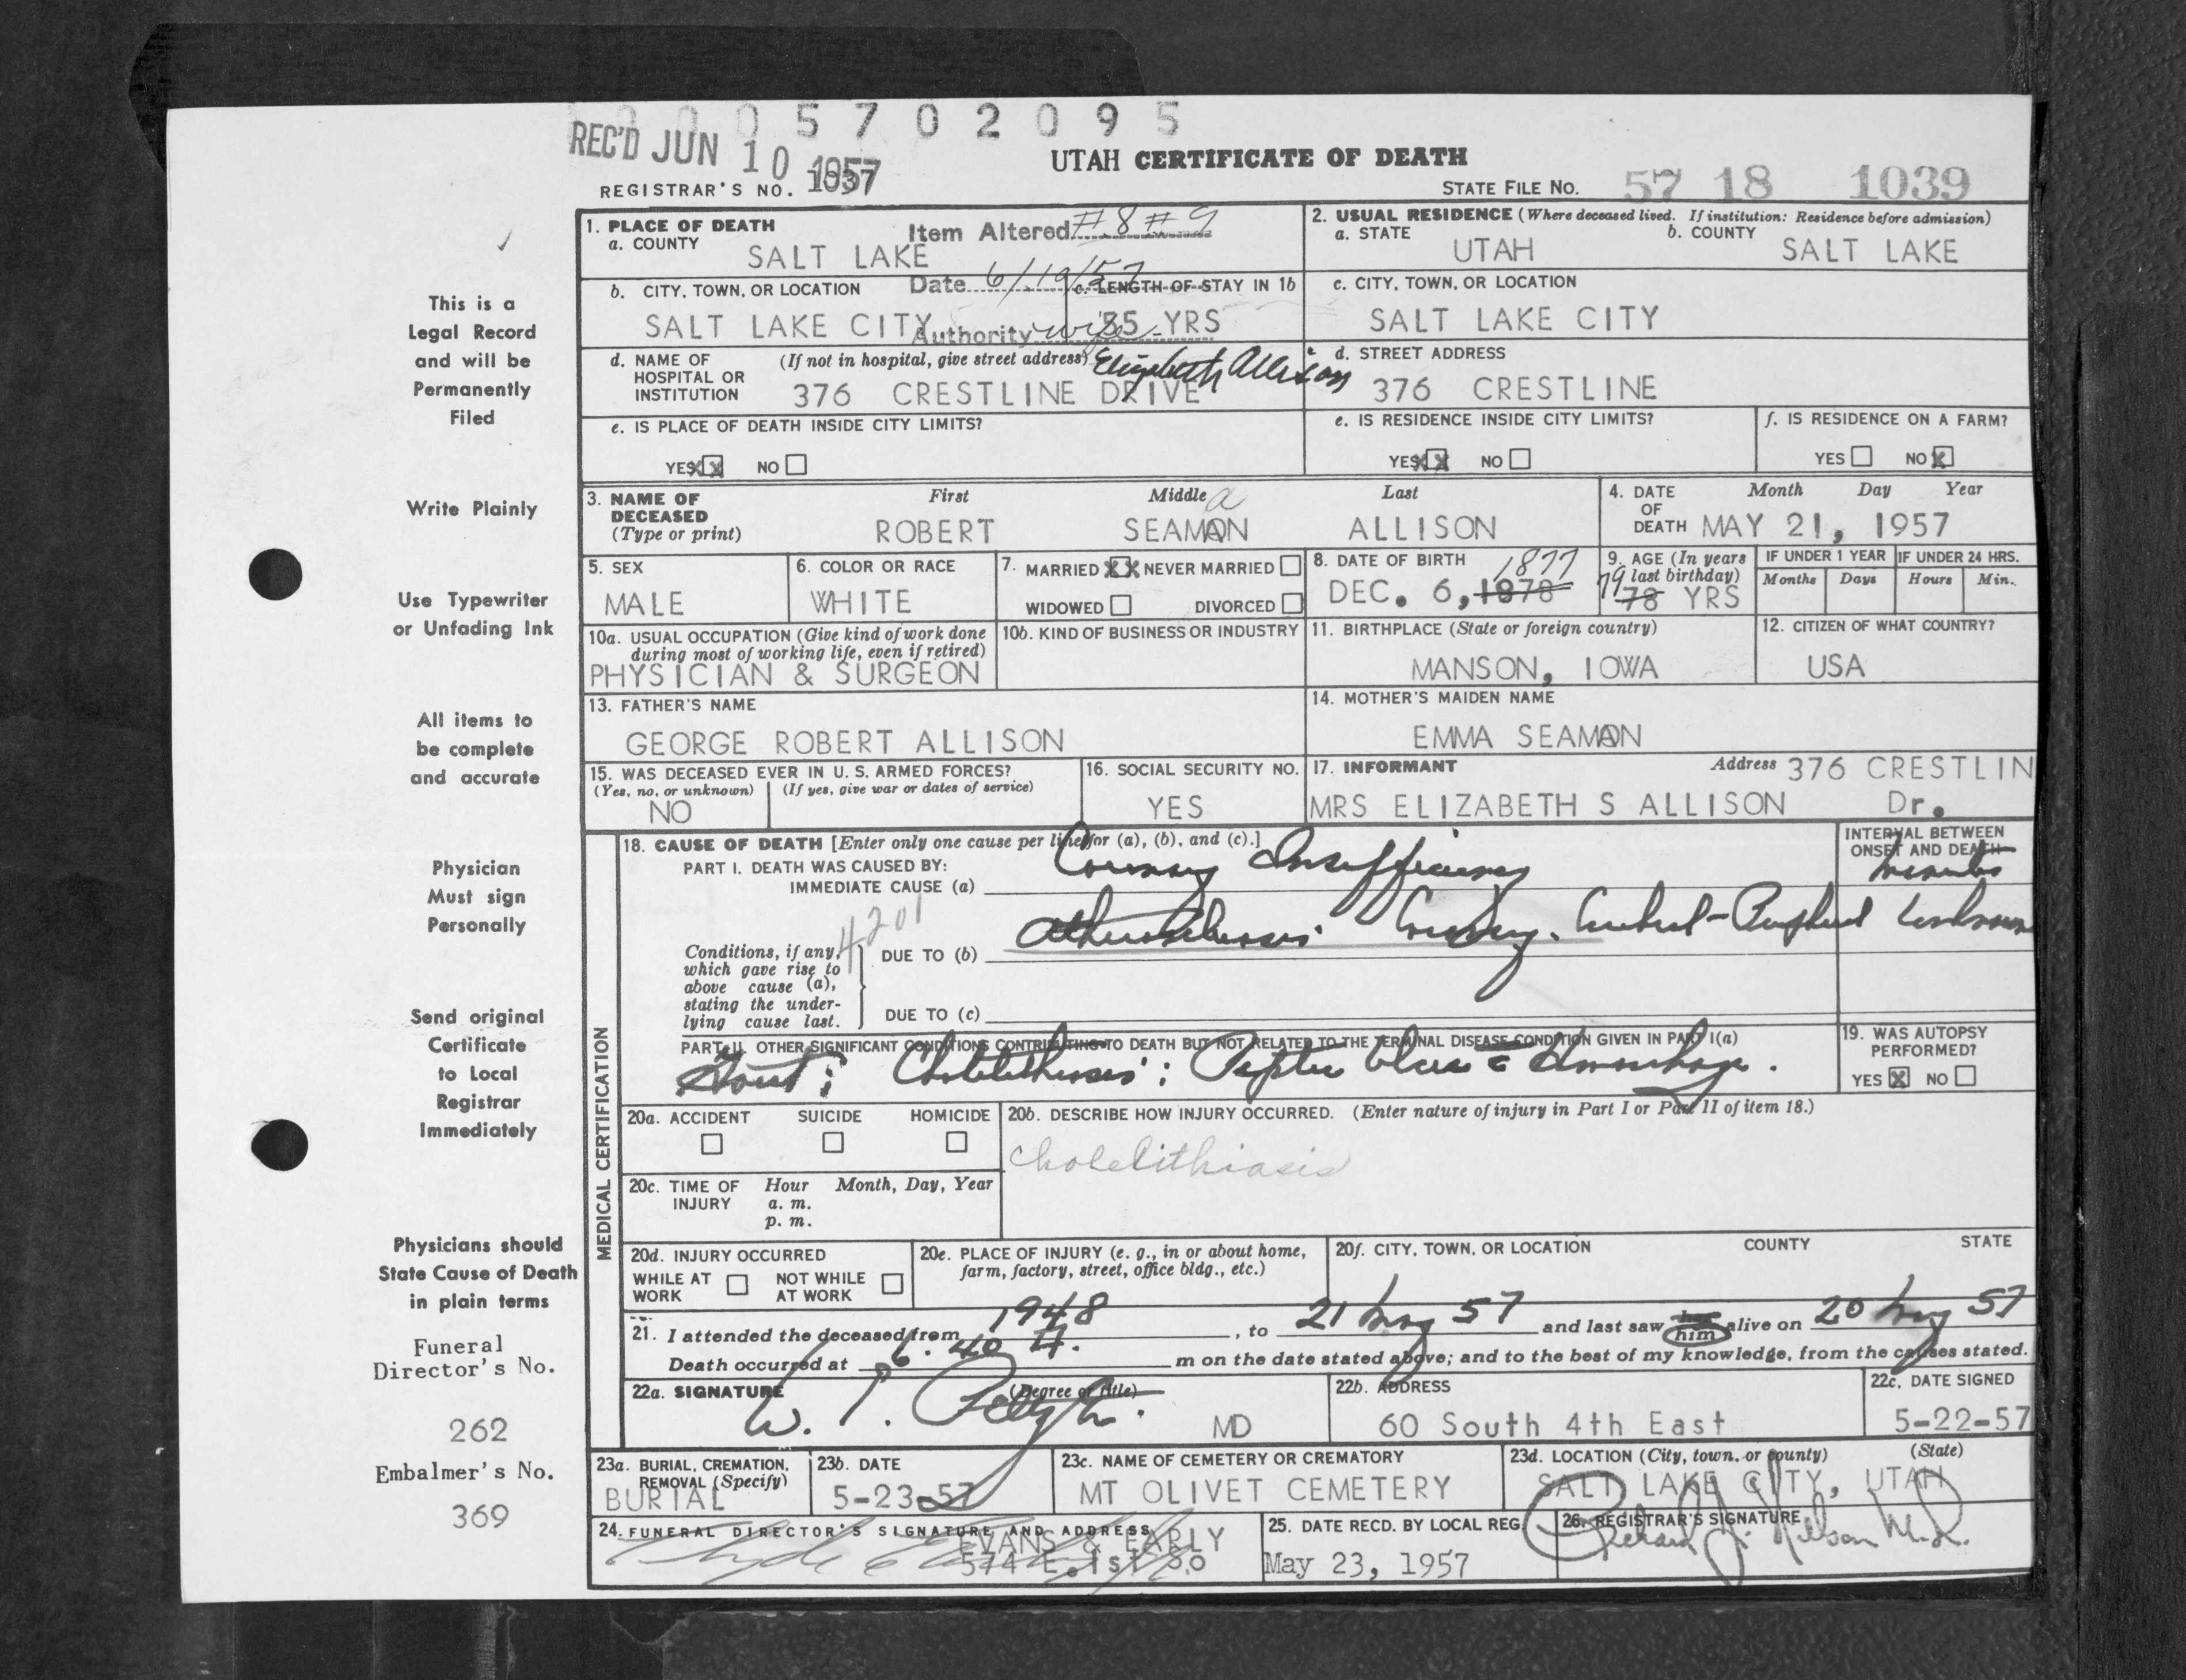 0005702095
REC'D JUN 10 1957
UTAH CERTIFICATE OF DEATH
REGISTRAR'S NO. 1037
STATE FILE NO. 57 18 1039
This is a
Legal Record
and will be
Permanently
Filed
Write Plainly
Use Typewriter
or Unfading Ink
All items to
be complete
and accurate
Physician
Must sign
Personally
Send original
Certificate
to Local
Registrar
Immediately
Physicians should
State Cause of Death
in plain terms
Funeral
Director's No.
262
Embalmer's No.
369
1. PLACE OF DEATH
a. COUNTY
SALT LAKE
Item Altered #8 #9
Date 6/19/57
Authority wife
Elizabeth Allison
2. USUAL RESIDENCE (Where deceased lived. If institution: Residence before admission)
a. STATE
UTAH
b. COUNTY
SALT LAKE
b. CITY, TOWN, OR LOCATION
SALT LAKE CITY
c. LENGTH OF STAY IN 1b
55 YRS
c. CITY, TOWN, OR LOCATION
SALT LAKE CITY
d. NAME OF HOSPITAL OR INSTITUTION
(If not in hospital, give street address)
376 CRESTLINE DRIVE
d. STREET ADDRESS
376 CRESTLINE
e. IS PLACE OF DEATH INSIDE CITY LIMITS?
YES XX NO
e. IS RESIDENCE INSIDE CITY LIMITS?
YES XX NO
f. IS RESIDENCE ON A FARM?
YES NO X
3. NAME OF DECEASED
(Type or print)
First Middle Last
a
ROBERT SEAMAN ALLISON
4. DATE OF DEATH
Month Day Year
MAY 21, 1957
5. SEX
MALE
6. COLOR OR RACE
WHITE
7. MARRIED XX NEVER MARRIED
WIDOWED DIVORCED
8. DATE OF BIRTH
1877
DEC. 6, 1878
9. AGE (In years last birthday)
79
78 YRS
IF UNDER 1 YEAR
Months Days
IF UNDER 24 HRS.
Hours Min.
10a. USUAL OCCUPATION (Give kind of work done during most of working life, even if retired)
PHYSICIAN & SURGEON
10b. KIND OF BUSINESS OR INDUSTRY
11. BIRTHPLACE (State or foreign country)
MANSON, IOWA
12. CITIZEN OF WHAT COUNTRY?
USA
13. FATHER'S NAME
GEORGE ROBERT ALLISON
14. MOTHER'S MAIDEN NAME
EMMA SEAMAN
15. WAS DECEASED EVER IN U. S. ARMED FORCES?
(Yes, no, or unknown) (If yes, give war or dates of service)
NO
16. SOCIAL SECURITY NO.
YES
17. INFORMANT
MRS ELIZABETH S ALLISON
Address 376 CRESTLIN
Dr.
MEDICAL CERTIFICATION
18. CAUSE OF DEATH [Enter only one cause per line for (a), (b), and (c).]
PART I. DEATH WAS CAUSED BY:
IMMEDIATE CAUSE (a) Coronary Insufficiency
INTERVAL BETWEEN ONSET AND DEATH
minutes
4201
Conditions, if any, which gave rise to above cause (a), stating the underlying cause last.
DUE TO (b) Atherosclerosis Coronary. Cerebral-Peripheral Unknown
DUE TO (c)
PART II. OTHER SIGNIFICANT CONDITIONS CONTRIBUTING TO DEATH BUT NOT RELATED TO THE TERMINAL DISEASE CONDITION GIVEN IN PART I(a)
Gout; Cholelithiasis; Peptic Ulcer c Hemorrhage.
19. WAS AUTOPSY PERFORMED?
YES X NO
20a. ACCIDENT SUICIDE HOMICIDE
20b. DESCRIBE HOW INJURY OCCURRED. (Enter nature of injury in Part I or Part II of item 18.)
Cholelithiasis
20c. TIME OF INJURY
Hour Month, Day, Year
a. m.
p. m.
20d. INJURY OCCURRED
WHILE AT WORK NOT WHILE AT WORK
20e. PLACE OF INJURY (e. g., in or about home, farm, factory, street, office bldg., etc.)
20f. CITY, TOWN, OR LOCATION COUNTY STATE
21. I attended the deceased from 1948, to 21 May 57 and last saw her him alive on 20 May 57
Death occurred at 6:40 A. m on the date stated above; and to the best of my knowledge, from the causes stated.
22a. SIGNATURE (Degree or title)
MD
22b. ADDRESS
60 South 4th East
22c. DATE SIGNED
5-22-57
23a. BURIAL, CREMATION, REMOVAL (Specify)
BURIAL
23b. DATE
5-23-57
23c. NAME OF CEMETERY OR CREMATORY
MT OLIVET CEMETERY
23d. LOCATION (City, town, or county) (State)
SALT LAKE CITY, UTAH
24. FUNERAL DIRECTOR'S SIGNATURE AND ADDRESS
EVANS & EARLY
574 E. 1st So
25. DATE RECD. BY LOCAL REG.
May 23, 1957
26. REGISTRAR'S SIGNATURE